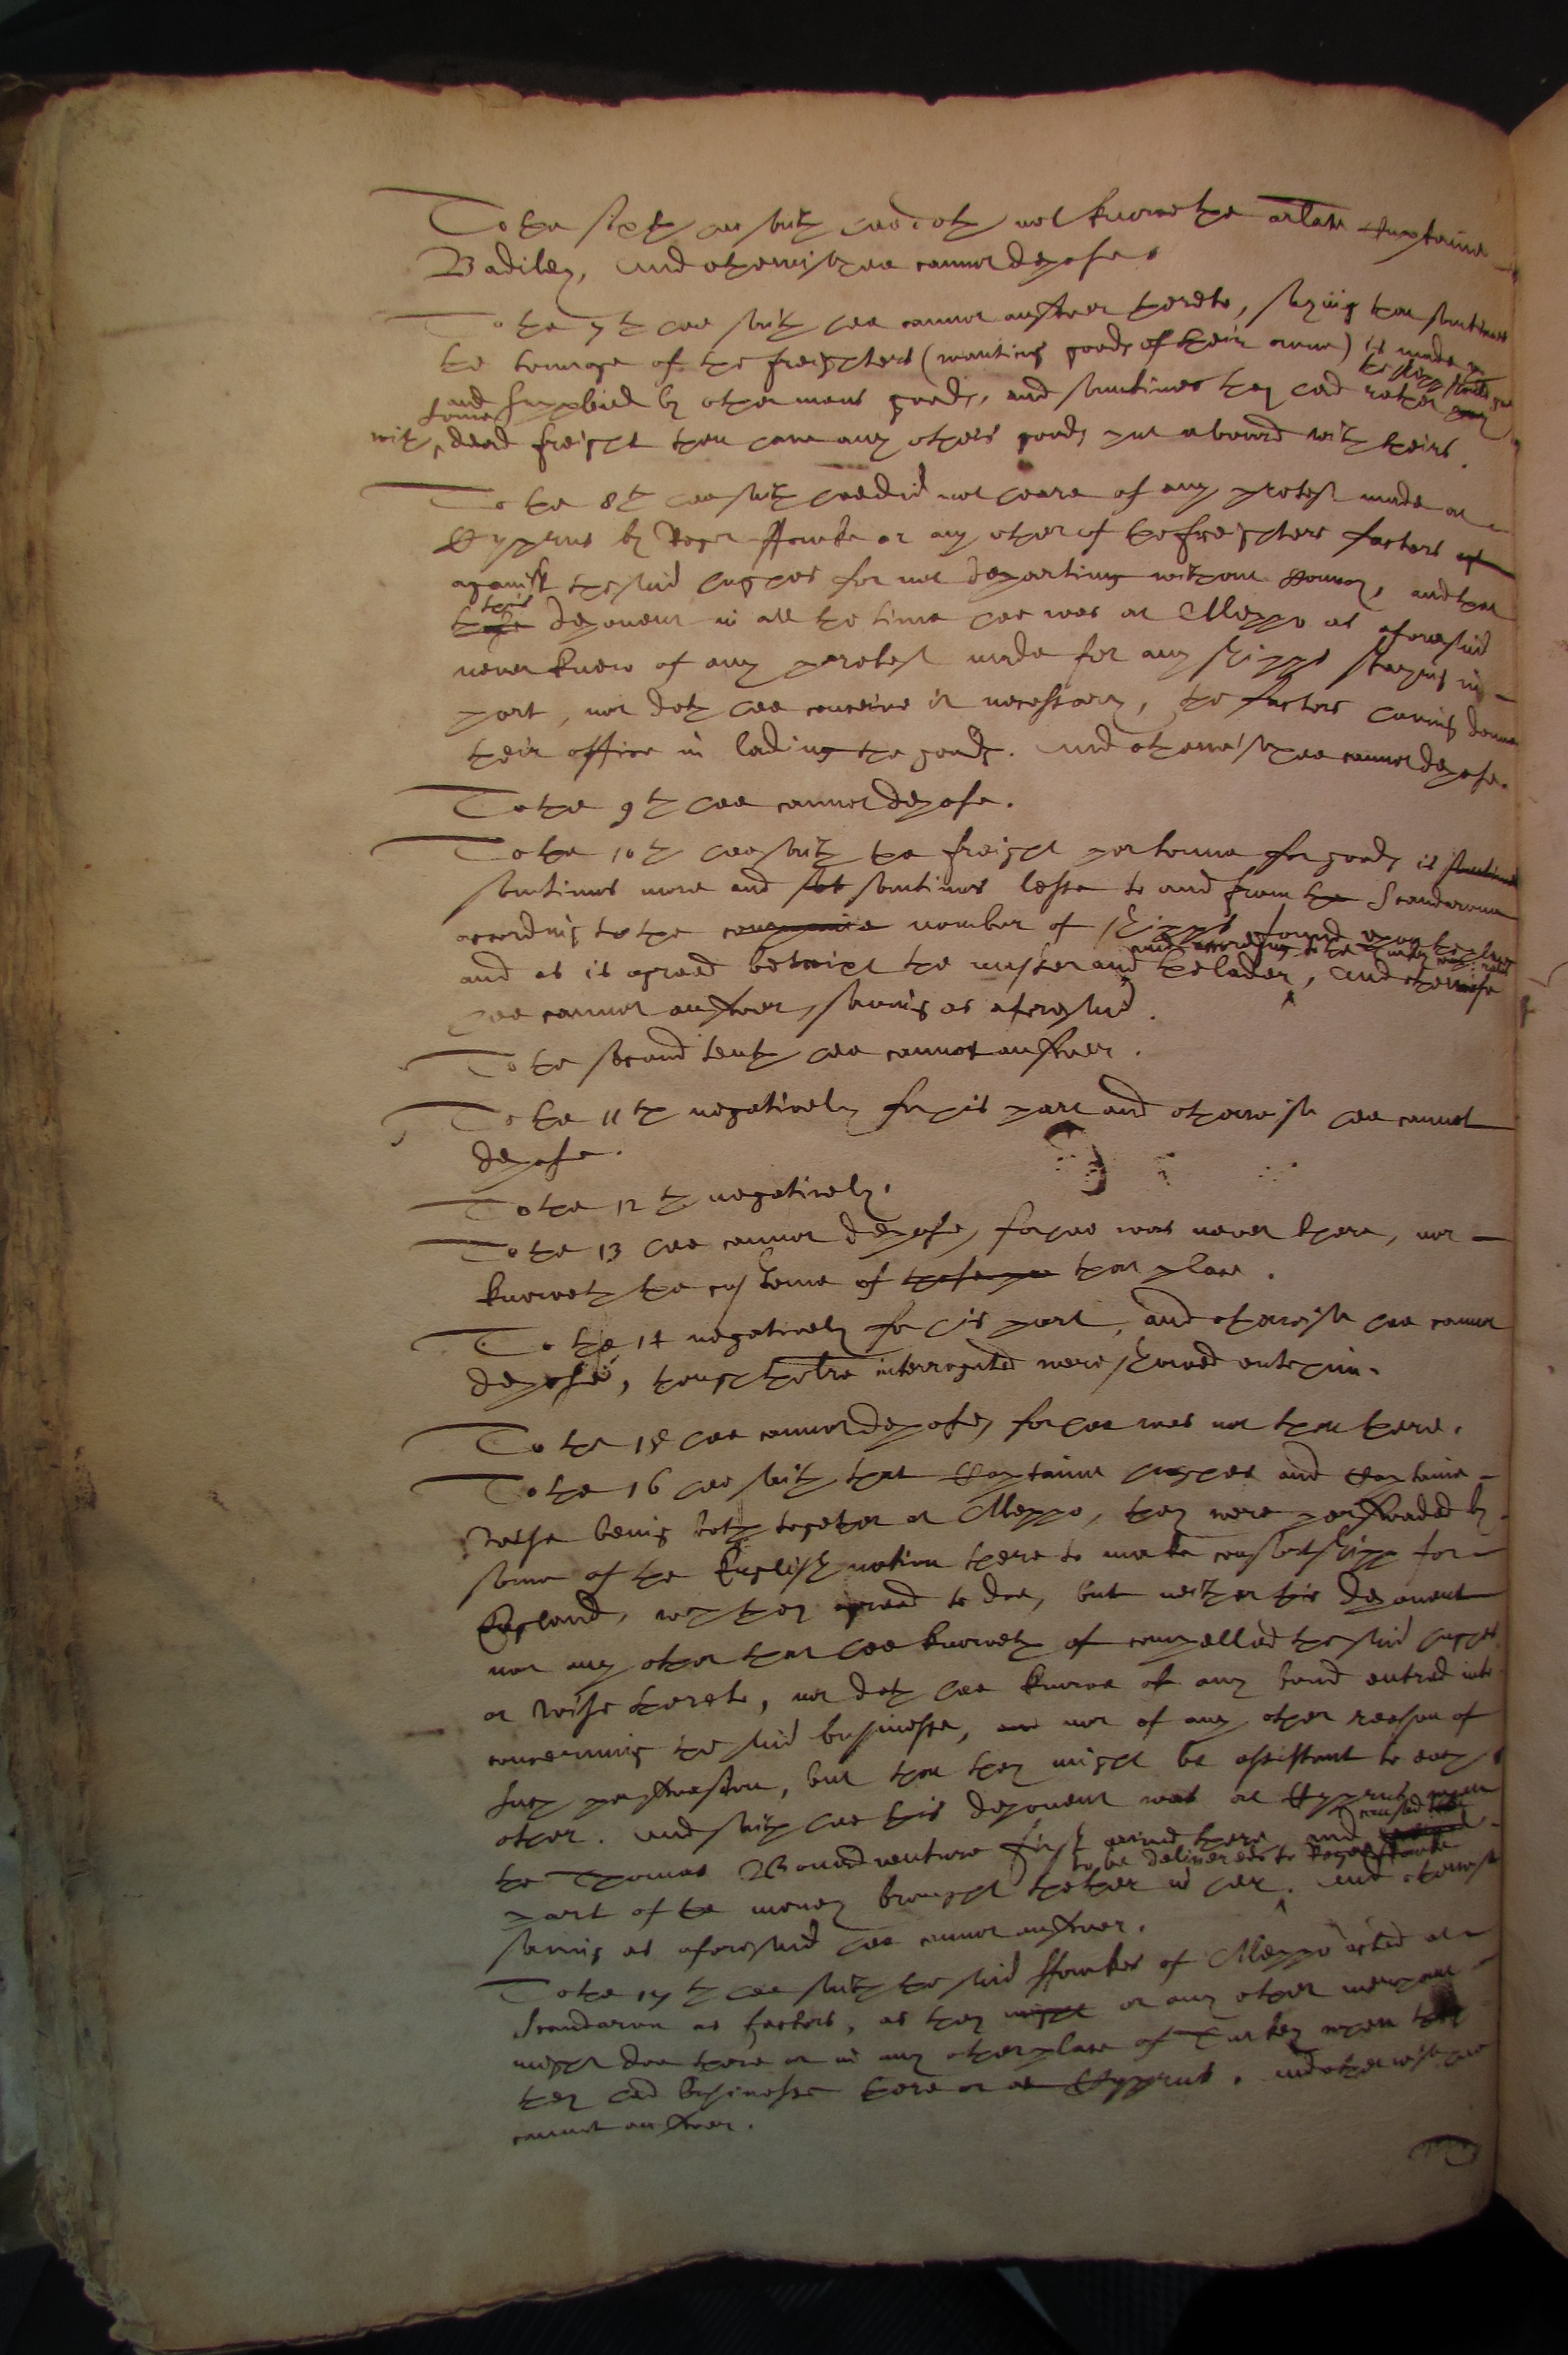 To the sixth hee saith hee doth not knowe the arlate Captaine
Badiley, And otherwise hee cannot depose.
To the 7th hee saith hee cannot answer thereto, saying that somtimes
the tonnage of the freighters (wanting goods of their owne) is made up
and supplied by other mens goods, and somtimes they had rather the shipp should goe
with some dead freight then have any others goods put aboard with theirs.
To the 8th hee saith hee did not heare of any protest made at
Cyprus by Roger ffowke or any other of the freighters factors
against the said Hughes for not departing without Convoy, and that
this deponent in all the time hee was at Aleppo as aforesaid
never knew of any protest made for any shipps staying in
port, nor doth hee conceive it necessary, the factors having donne
their office in lading the goods. And otherwise hee cannot depose.
To the 9th hee cannot depose.
To the 10th hee saith the freight per tonne for goods is somtimes
somtimes more and somtimes lesse to and from the Scanderone
according to the companie number of shipps found upon the place
and according to the
and as is agreed betwixt the master and the lader, And otherwise
hee cannot answer, saving as aforesaid.
To the second tenth hee cannot answer.
To the 11th negatively for his part and otherwise hee cannot
depose.
To the 12th negatively.
To the 13 hee cannot depose, for hee was never there, nor
knoweth the custome of that place.
To the 14 negatively for his part, and otherwise hee cannot
depose, though the interrogated were shewed unto him.
To the 15 hee cannot depose, for hee was not then there.
To the 16 hee saith that Captaine Hughes and Captaine
Wise being both together at Aleppo, they were perswaded by
some of the English nation there to make consortshipp for
England, which they agreed to doe, but neither this deponent
nor any other that hee knoweth of compelled the said Hughes
or Wise thereto, nor doth hee knowe of any bond entred into
concerning the said businesse, nor of any other reason of
such perswasion, but that they might be assistant to each
other. And saith hee this deponent was at Cyprus when
the Thomas Bonadventure first arived there, and caused
to be delivered to Roger ffowke
part of the money brought thether in her. And otherwise
saving as aforesaid hee cannot answer.
To the 17th hee saith the said ffowkes of Aleppo acted at
Scanderon as factors, as they might or any other merchant
might doe there or in any other place of Turkey when they
they had businesse there or at Cyprus. And otherwise hee
cannot answer.